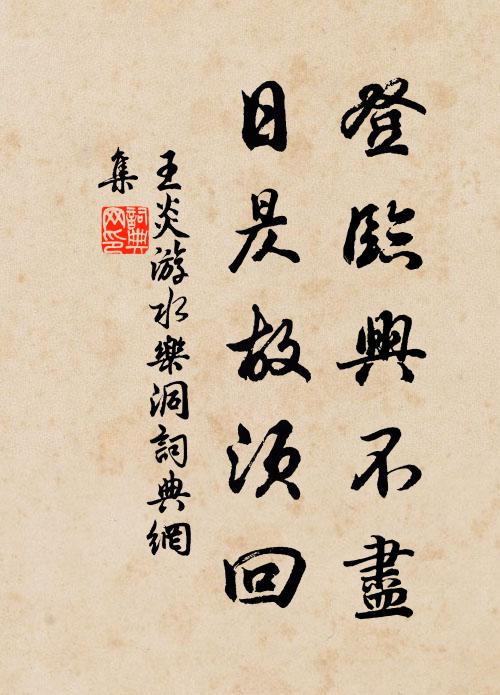 登臨興不盡
日昃故須回
王炎游水樂洞詞典網
集
詞典網印